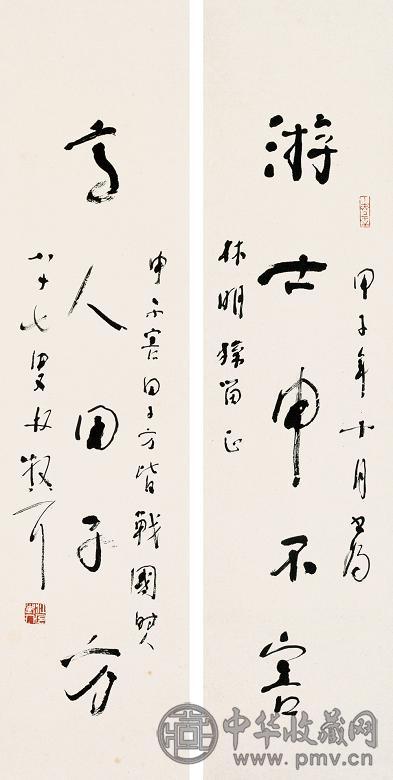 游士申不害
甲子年十月书为
林明 留正
高人田子方
申不害田子方皆戰國賢
八十七叟林散耳
中华收藏网
www.pmv.cn